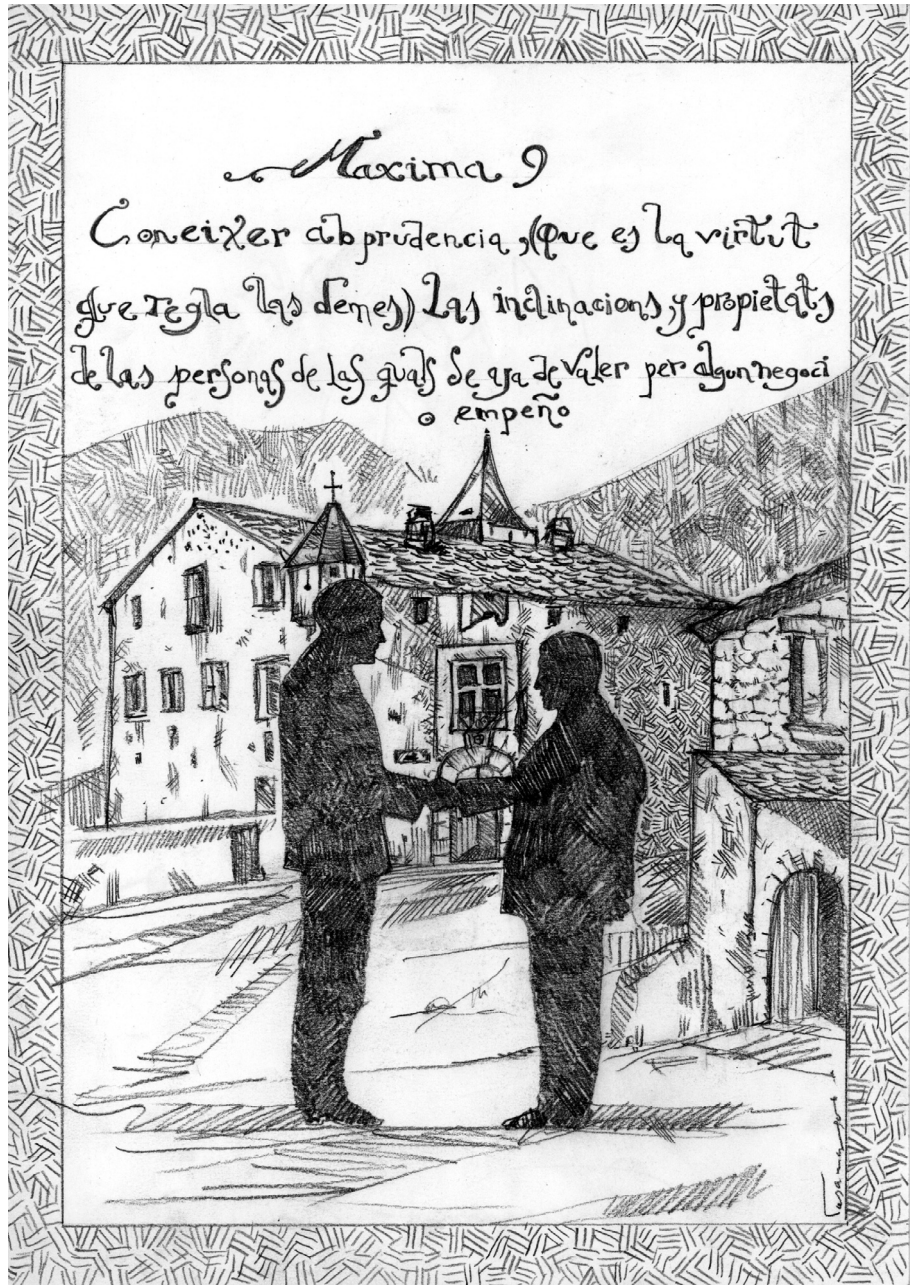 Maxima 9
Coneixer ab prudencia, (que es la virtut
que regla las demes) Las inclinacions y propietats
de las personas de las quals se aja de valer per algun negoci
o empeño